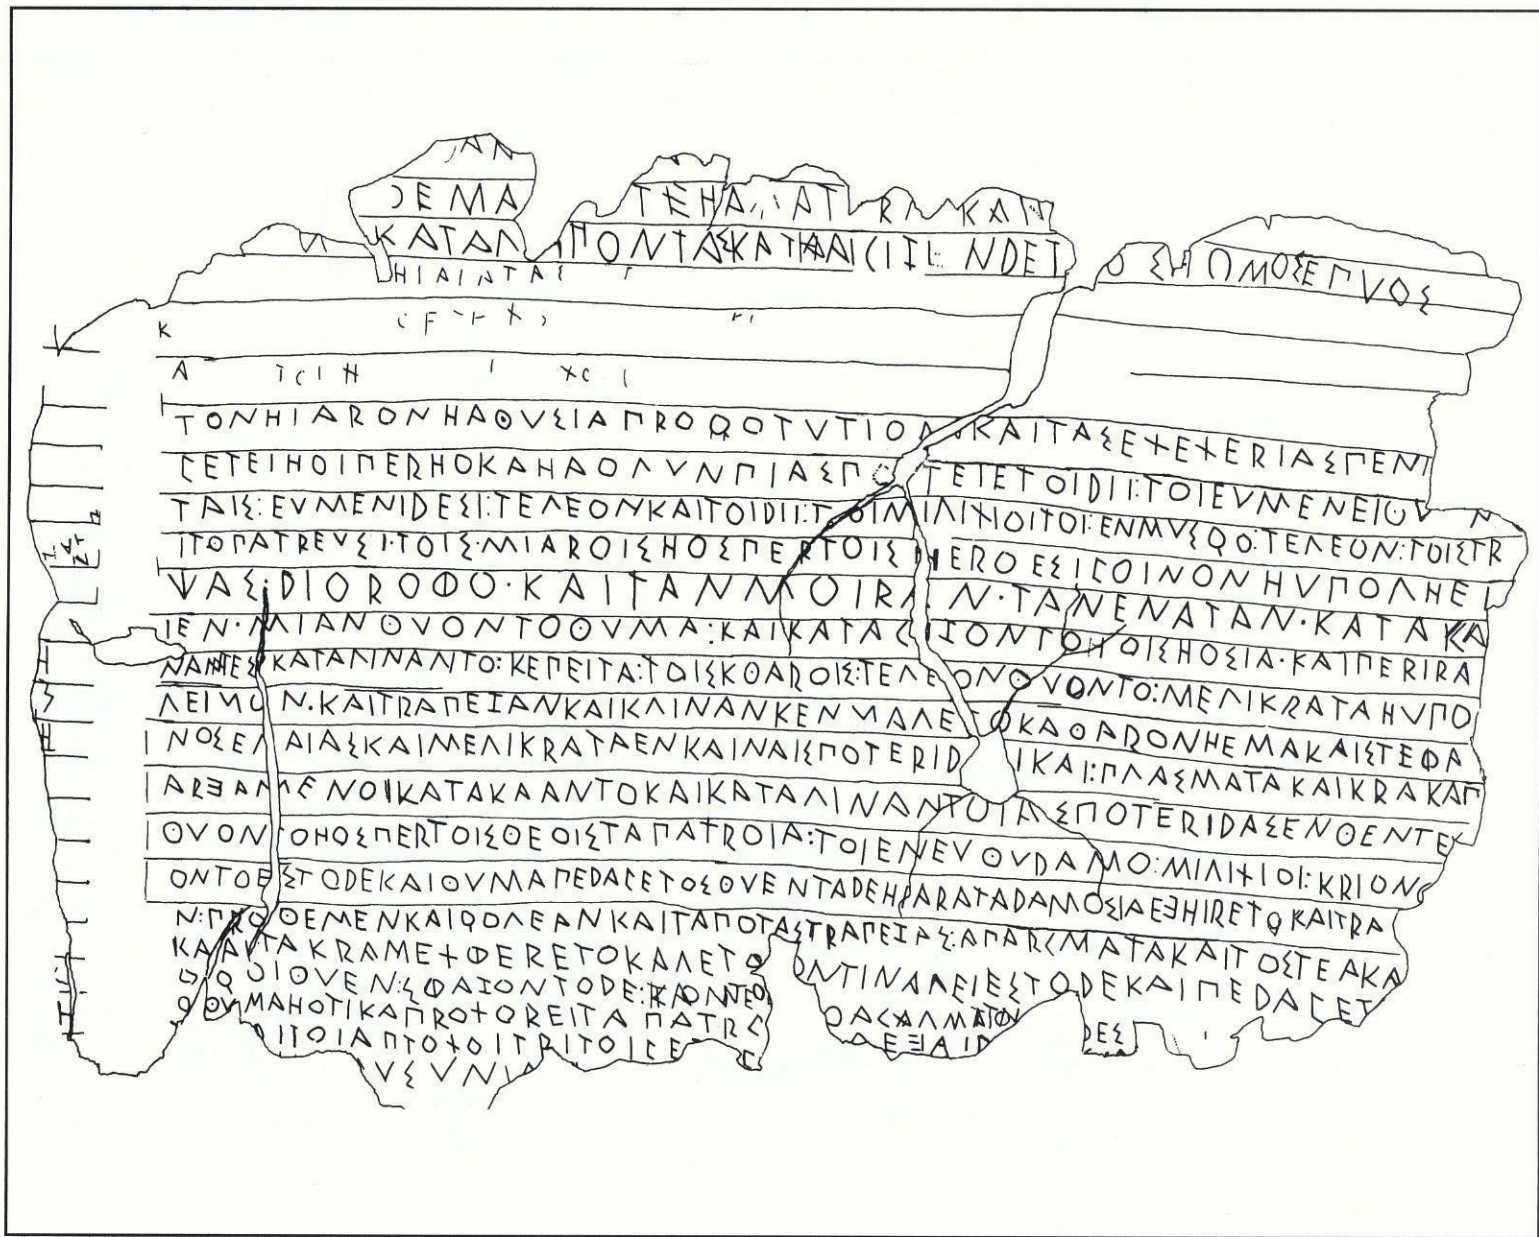 ΑΝ
ΔΕΜΑ ΤΕΗΑ ΑΤ ΚΑΙ
ΚΑΤΑΛ ΠΟΝΤΑΣΚΑΤΗΑΙΓΙΖΕΝΔΕΤΟΣΗΟΜΟΣΕΠΥΟΣ
Κ
Α
ΤΟΝΗΙΑΡΟΝΗΑΘΥΣΙΑΠΡΟϘΟΤΥΤΙΟΝΚΑΙΤΑΣΕΧΕΧΕΡΙΑΣΠΕΝΠ
ϜΕΤΕΙΗΟΙΠΕΡΗΟΚΑΗΑΟΛΥΝΠΙΑΣΠΟΤΕΙΕΤΟΙΔΙΙ:ΤΟΙΕΥΜΕΝΕΙΘΥ Ν
ΤΑΙΣ:ΕΥΜΕΝΙΔΕΣΙ:ΤΕΛΕΟΝΚΑΙΤΟΙΔΙΙ:ΤΟΙΜΙΛΙΧΙΟΙΤΟΙ:ΕΝΜΥΣϘΟ:ΤΕΛΕΟΝ:ΤΟΙΣΤΡ
ΙΤΟΠΑΤΡΕΥΣΙ·ΤΟΙΣ·ΜΙΑΡΟΙΣΗΟΣΠΕΡΤΟΙΣΗΕΡΟΕΣΙϜΟΙΝΟΝΗΥΠΟΛΗΕΙ
ΨΑΣ·ΔΙΟΡΟΦΟ·ΚΑΙΤΑΝΜΟΙΡΑΝ·ΤΑΝΕΝΑΤΑΝ·ΚΑΤΑΚΑ
ΙΕΝ·ΜΙΑΝΘΥΟΝΤΟΘΥΜΑ:ΚΑΙΚΑΤΑΓΙΖΟΝΤΟΗΟΙΣΗΟΣΙΑ·ΚΑΙΠΕΡΙΡΑ
ΝΑΝΤΕΣΚΑΤΑΛΙΝΑΝΤΟ:ΚΕΠΕΙΤΑ:ΤΟΙΣΚΘΑΡΟΙΣ:ΤΕΛΕΟΝΘΥΟΝΤΟ:ΜΕΛΙΚΡΑΤΑΗΥΠΟ
ΛΕΙΒΟΝ·ΚΑΙΤΡΑΠΕΖΑΝΚΑΙΚΛΙΝΑΝΚΕΝΒΑΛΕΤΟΚΑΘΑΡΟΝΗΕΜΑΚΑΙΣΤΕΦΑ
ΝΟΣΕΛΑΙΑΣΚΑΙΜΕΛΙΚΡΑΤΑΕΝΚΑΙΝΑΙΣΠΟΤΕΡΙΔ ΙΚΑΙ:ΠΛΑΣΜΑΤΑΚΑΙΚΡΑΚΑΠ
ΑΡΞΑΜΕΝΟΙΚΑΤΑΚΑΑΝΤΟΚΑΙΚΑΤΑΛΙΝΑΝΤΟΤΑΣΠΟΤΕΡΙΔΑΣΕΝΘΕΝΤΕΣ
ΘΥΟΝΤΟΗΟΣΠΕΡΤΟΙΣΘΕΟΙΣΤΑΠΑΤΡΟΙΑ:ΤΟΙΕΝΕΥΘΥΔΑΜΟ:ΜΙΛΙΧΙΟΙ:ΚΡΙΟΝΘ
ΟΝΤΟΕΣΤΟΔΕΚΑΙΘΥΜΑΠΕΔΑϜΕΤΟΣΘΥΕΝΤΑΔΕΗΙΑΡΑΤΑΔΑΜΟΣΙΑΕΞΗΙΡΕΤΟΚΑΙΤΡΑ
Ν:ΠΡΟΘΕΜΕΝΚΑΙϘΟΛΕΑΝΚΑΙΤΑΠΟΤΑΣΤΡΑΠΕΖΑΣ:ΑΠΑΡΓΜΑΤΑΚΑΙΤΟΣΤΕΑΚΑ
ΚΑΑΙΤΑΚΡΑΜΕΧΦΕΡΕΤΟΚΑΛΕΤΟ ΟΝΤΙΝΑΛΕΙΕΣΤΟΔΕΚΑΙΠΕΔΑϜΕΤ
ΟΙϘΟΙΘΥΕΝ:ΣΦΑΖΟΝΤΟΔΕ: ΟΑΓΑΛΜΑΤΟΝ ΔΕΣ
ΟΘΥΜΑΗΟΤΙΚΑΠΡΟΧΟΡΕΙΤΑΠΑΤΡΟ ΕΞΑΙ
ΙΤΟΙΑΠΤΟΧΟΙΤΡΙΤΟΙϜΕ
ΥΣΥΝΙΑ